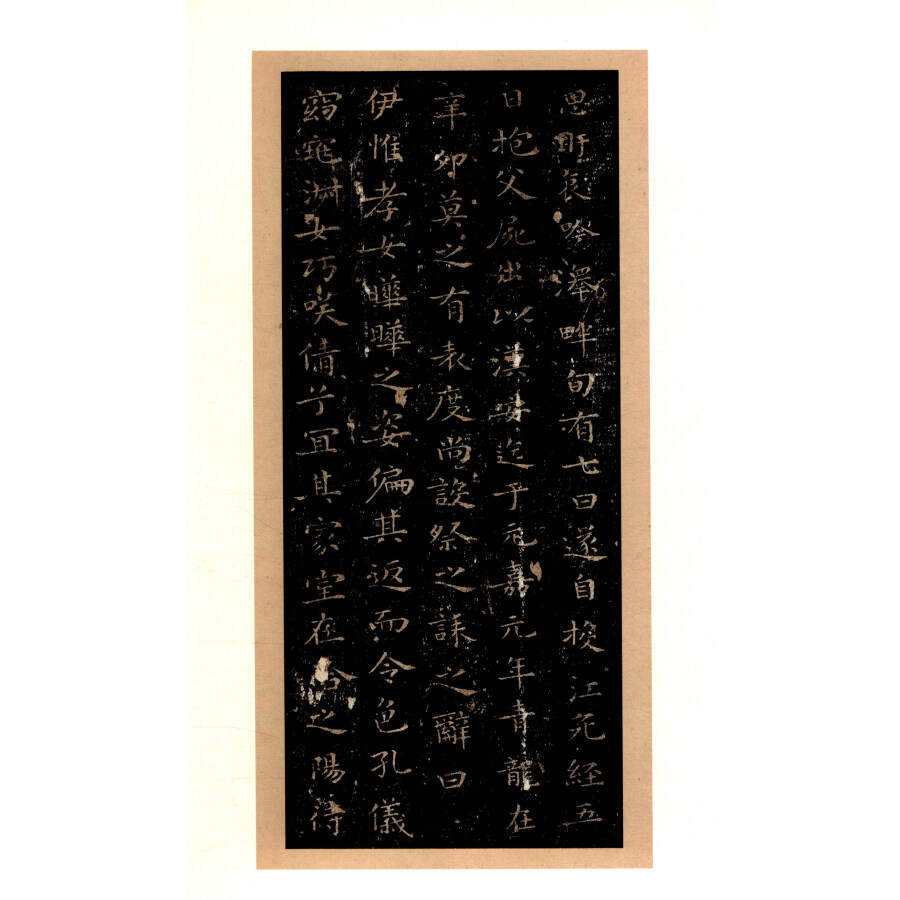 思盱哀吟澤畔旬有七日遂自投江死經五
日抱父屍出以漢安迄于元嘉元年青龍在
辛卯莫之有表度尚設祭之誄之辭曰
伊惟孝女曄曄之姿偏其返而令色孔儀
窈窕淑女巧咲倩兮冝其家室在洽之陽待